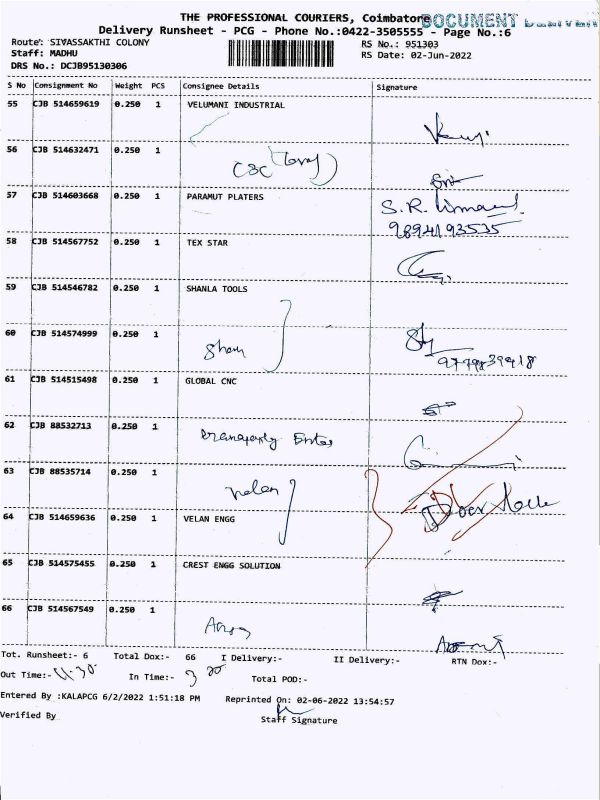 THE PROFESSIONAL COURIERS, Coimbatore
DOCUMENT
Delivery Runsheet - PCG - Phone No.:0422-3505555 - Page No.:6
Route: SIVASSAKTHI COLONY RS No.: 951303
Staff: MADHU RS Date: 02-Jun-2022
DRS No.: DCJB95130306
S No Consignment No Weight PCS Consignee Details Signature
55 CJB 514659619 0.250 1 VELUMANI INDUSTRIAL
56 CJB 514632471 0.250 1
CSC
57 CJB 514603668 0.250 1 PARAMUT PLATERS
S.R.
9894193535
58 CJB 514567752 0.250 1 TEX STAR
59 CJB 514546782 0.250 1 SHANLA TOOLS
60 CJB 514574999 0.250 1
61 CJB 514515498 0.250 1 GLOBAL CNC
62 CJB 88532713 0.250 1
63 CJB 88535714 0.250 1
Velan
Door
64 CJB 514659636 0.250 1 VELAN ENGG
65 CJB 514575455 0.250 1 CREST ENGG SOLUTION
66 CJB 514567549 0.250 1
Tot. Runsheet:- 6 Total Dox:- 66 I Delivery:- II Delivery:- RTN Dox:-
Out Time:- 11.30 In Time:- 3 20 Total POD:-
Entered By :KALAPCG 6/2/2022 1:51:18 PM Reprinted On: 02-06-2022 13:54:57
Verified By Staff Signature